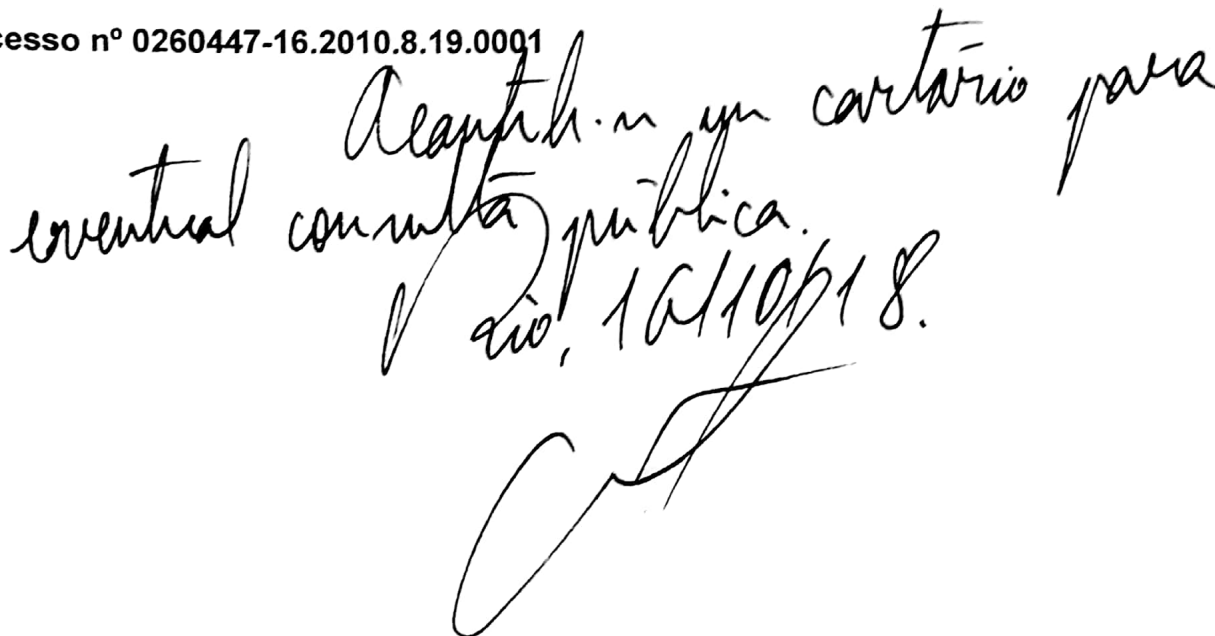 cesso nº 0260447-16.2010.8.19.0001
Acautele-se em cartório para
eventual consulta pública.
Rio, 16/10/18.